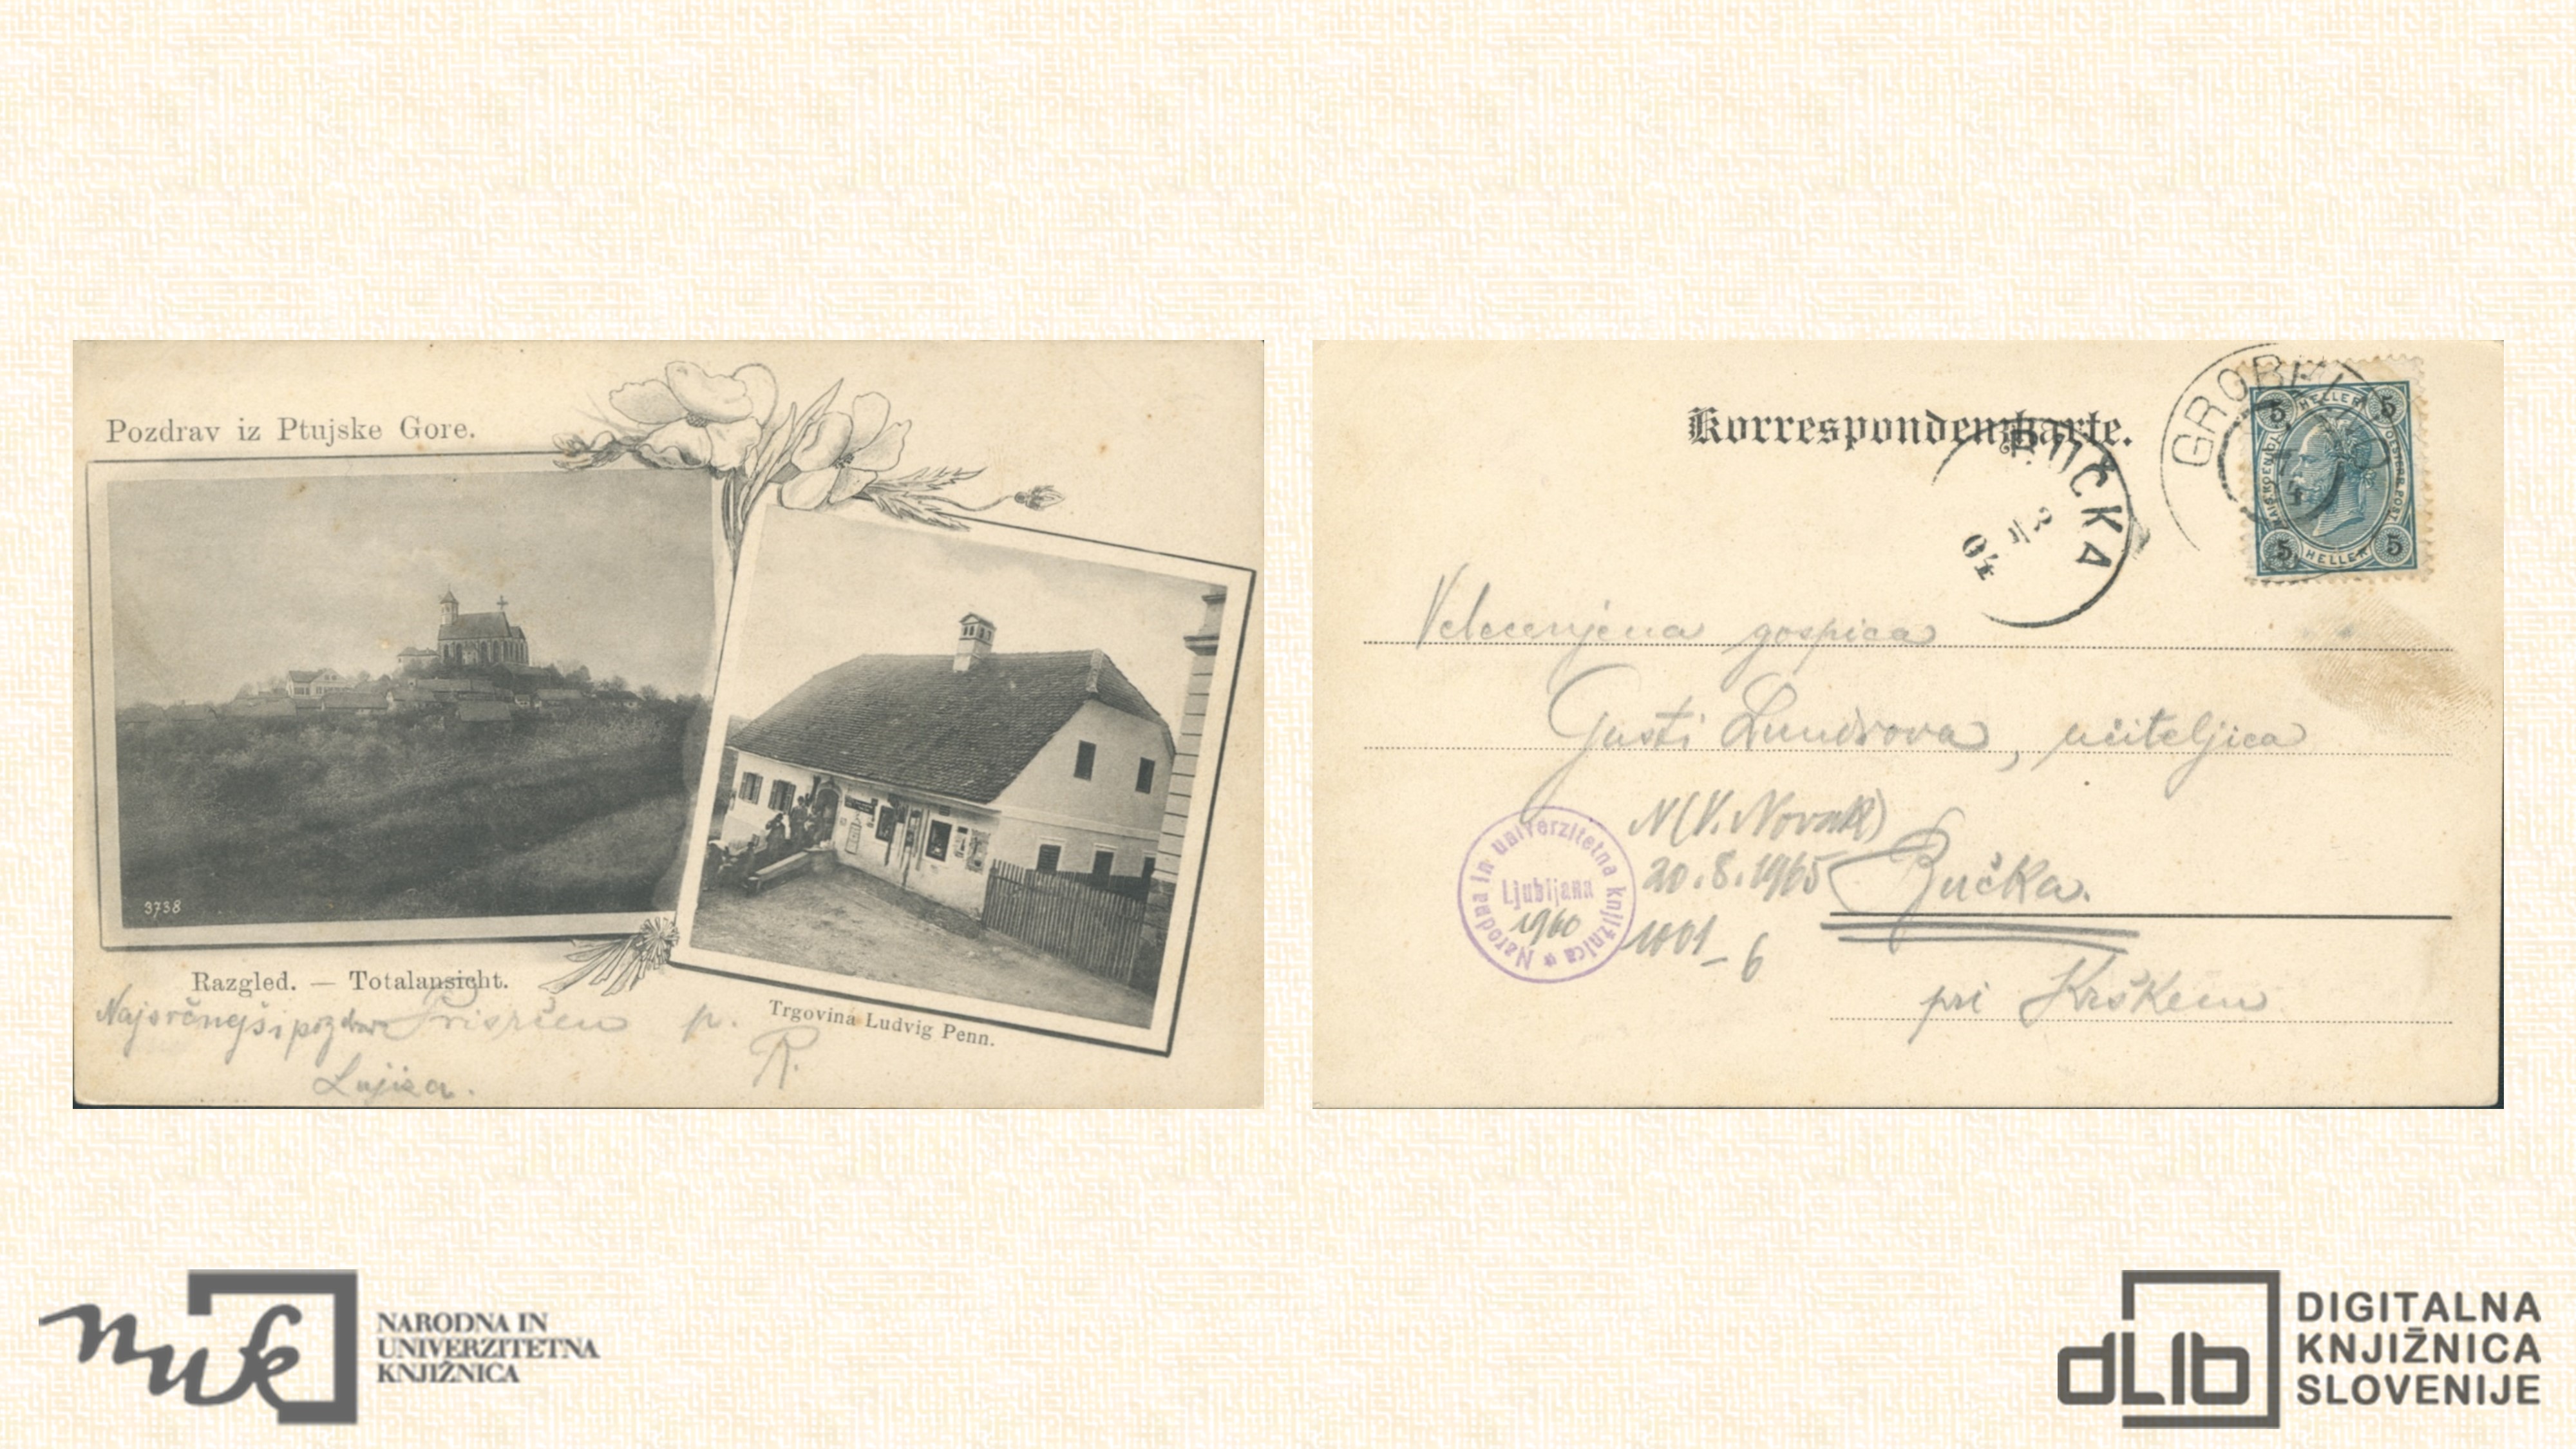 Pozdrav iz Ptujske Gore.
3738
Razgled. — Totalansicht.
Trgovina Ludvig Penn.
Najsrčnejši pozdrav
Prisrčen p.
R.
Lujiza.
Korrespondenzkarte.
BUČKA
04
GROBELNO
5 HELLER 5
5 HELLER 5
Velecenjena gospica
Gusti Lundrova, učiteljica
N(V. Novak)
20.8.1965
Bučka.
Narodna in univerzitetna knjižnica
Ljubljana
1960
1001-6
pri Krškem
nuk
NARODNA IN
UNIVERZITETNA
KNJIŽNICA
dLib
DIGITALNA
KNJIŽNICA
SLOVENIJE